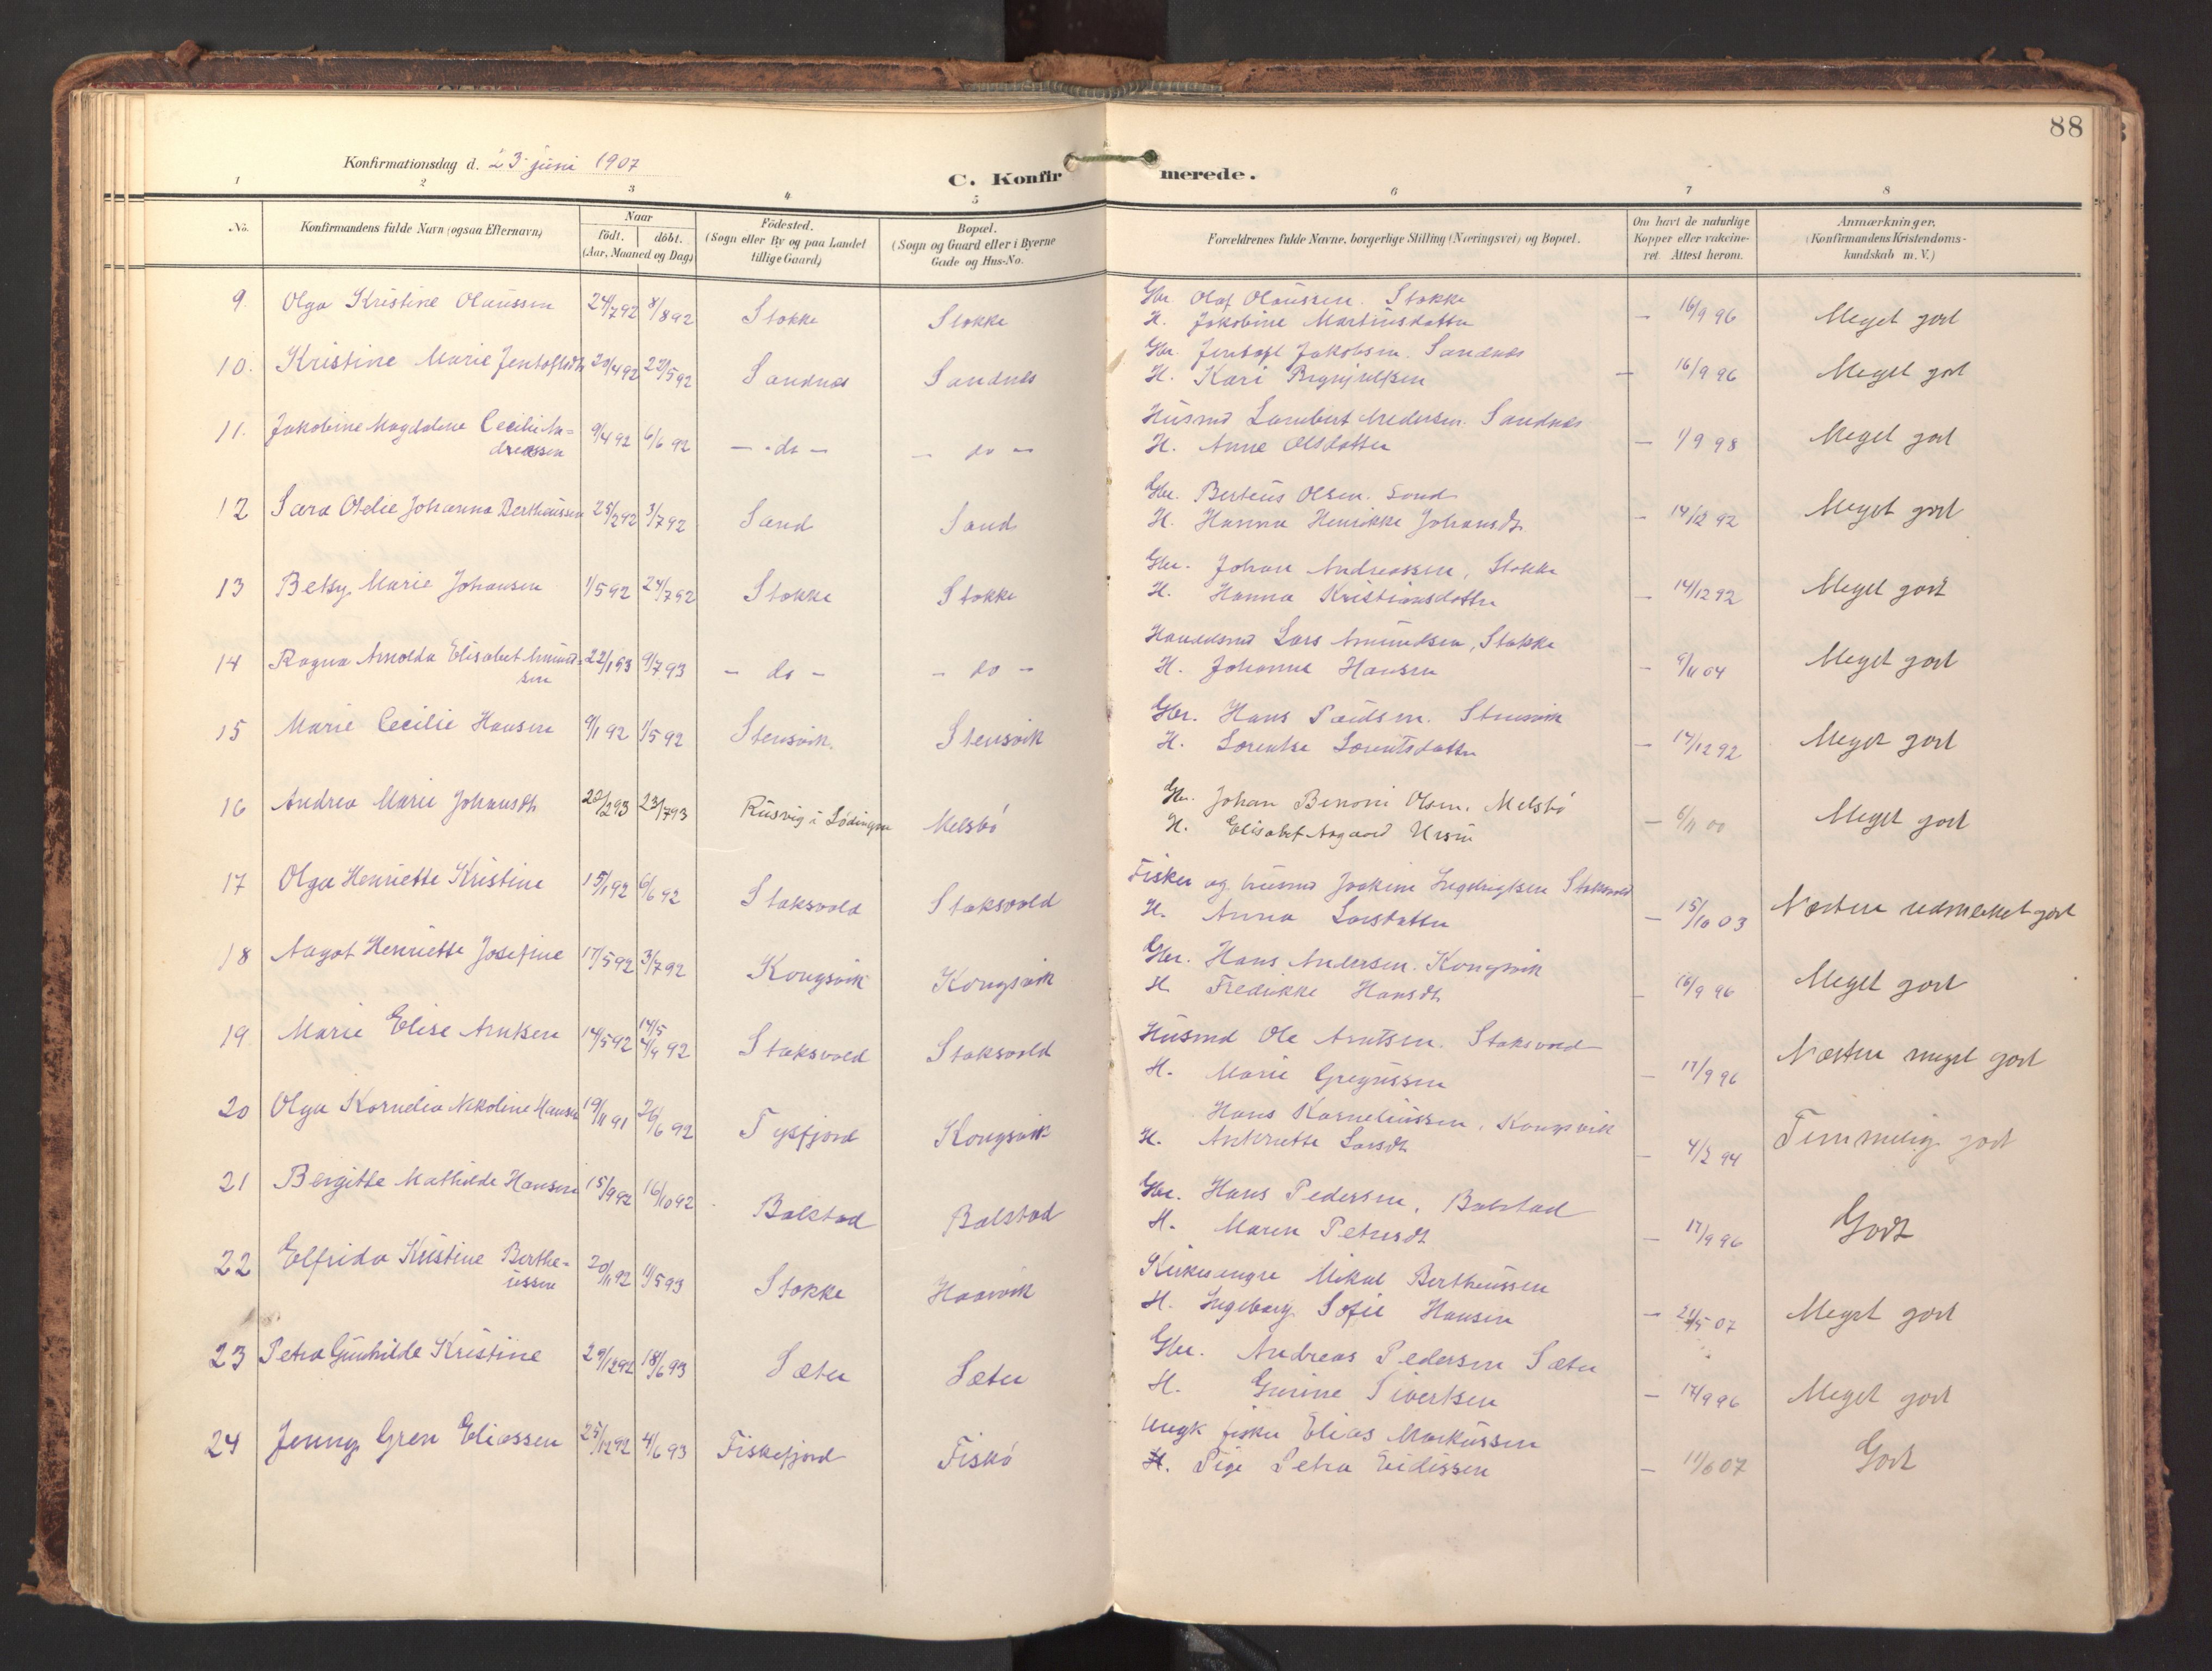 88
Konfirmationsdag d. 23 juni 1907
C. Konfirmerede.
1 2 3 4 5 6 7 8
No.
Konfirmandens fulde Navn (ogsaa Efternavn)
Naar
født. døbt.
(Aar, Maaned og Dag)
Fødested.
(Sogn eller By og paa Landet
tillige Gaard)
Bopæl.
(Sogn og Gaard eller i Byerne
Gade og Hus-No.
Forældrenes fulde Navne, borgerlige Stilling (Næringsvei) og Bopæl.
Om havt de naturlige
Kopper eller vakcine-
ret. Attest herom.
Anmærkninger.
(Konfirmandens Kristendoms-
kundskab m. V.)
9. Olga Kristine Olaussen 24/7 92 8/8 92 Stokke Stokke Gbr. Olaf Olaussen. Stokke
H. Jakobine Martinsdatter – 16/9 96 Meget godt
10. Kristine Marie Jentoftsdtr 20/4 92 22/5 92 Sandnes Sandnes Gbr. Jentoft Jakobsen. Sandnes
H. Kari – 16/9 96 Meget godt
11. Jakobine Magdalene Cecilie An=
dreassen 9/4 92 6/6 92 – do – – do – Husmd Lambert Andersen. Sandnes
H. Anne Olsdatter – 1/9 98 Meget godt
12 Sara Otelie Johanna Bertheussen 25/2 92 3/7 92 Sand Sand Gbr. Berteus Olsen. Sand
H. Hanna Henrikke Johansdtr – 14/12 92 Meget godt
13 Betsy Marie Johansen 1/5 92 24/7 92 Stokke Stokke Gbr. Johan Andreassen, Stokke
H. Hanna Kristiansdatter – 14/12 92 Meget godt
14 Ragna Arnolda Elisabet Amund=
sen 22/1 93 9/7 93 – do – – do – Handelsmd Lars Amundsen, Stokke
H. Johanna Hansen – 9/11 04 Meget godt
15 Marie Cecilie Hansen 9/1 92 1/5 92 Stensvik Stensvik Gbr. Hans Paulsen. Stensvik
H. Lorentse Lorentsdatter – 14/12 92 Meget godt
16 Andrea Marie Johansdtr 22/2 93 23/7 93 Rusvig i Lødingen Melsbø Gbr. Johan Benoni Olsen. Melsbø
H. Elisabet Aagaard Ursin – 6/11 00 Meget godt
17 Olga Henriette Kristine 15/1 92 6/6 92 Staksvold Staksvold Fisker og husmd Joakim Ingebrigtsen Staksvold
H. Anna Larsdatter – 15/10 03 Næsten udmerket godt
18 Aagot Henriette Josefine 17/5 92 3/7 92 Kongsvik Kongsvik Gbr. Hans Andersen. Kongsvik
H. Fredrikke Hansdtr – 16/9 96 Meget godt
19 Marie Elise Arntsen 14/5 92 14/5
4/9 92 Staksvold Staksvold Husmd Ole Arntsen. Staksvold
H. Marie Gregussen – 17/9 96 Næsten meget godt
20 Olga Kornelia Nikoline Hansen 19/11 91 26/6 92 Tysfjord Kongsvik Hans Korneliussen, Kongsvik
H. Antoriette Larsdtr – 4/2 94 Temmelig godt
21 Bergitte Mathilde Hansen 15/9 92 16/10 92 Balstad Balstad Gbr. Hans Pedersen, Balstad
H. Maren Petersdtr – 17/9 96 Godt
22 Elfrida Kristine Berthe=
ussen 20/11 92 11/5 93 Stokke Haarvik Kirkesanger Mikal Bertheussen
H. Ingeborg Sofie Hansen – 24/5 07 Meget godt
23 Petra Gunhilde Kristine 29/12 92 18/6 93 Sæter Sæter Gbr. Andreas Pedersen Sæter
H. Gurine Sivertsen – 17/9 96 Meget godt
24 Jenny Gren Eliassen 25/12 92 4/6 93 Fiskefjord Fiskø Ungk fisker Elias Markussen
H. Pige Petra Eidissen – 11/6 07 Godt